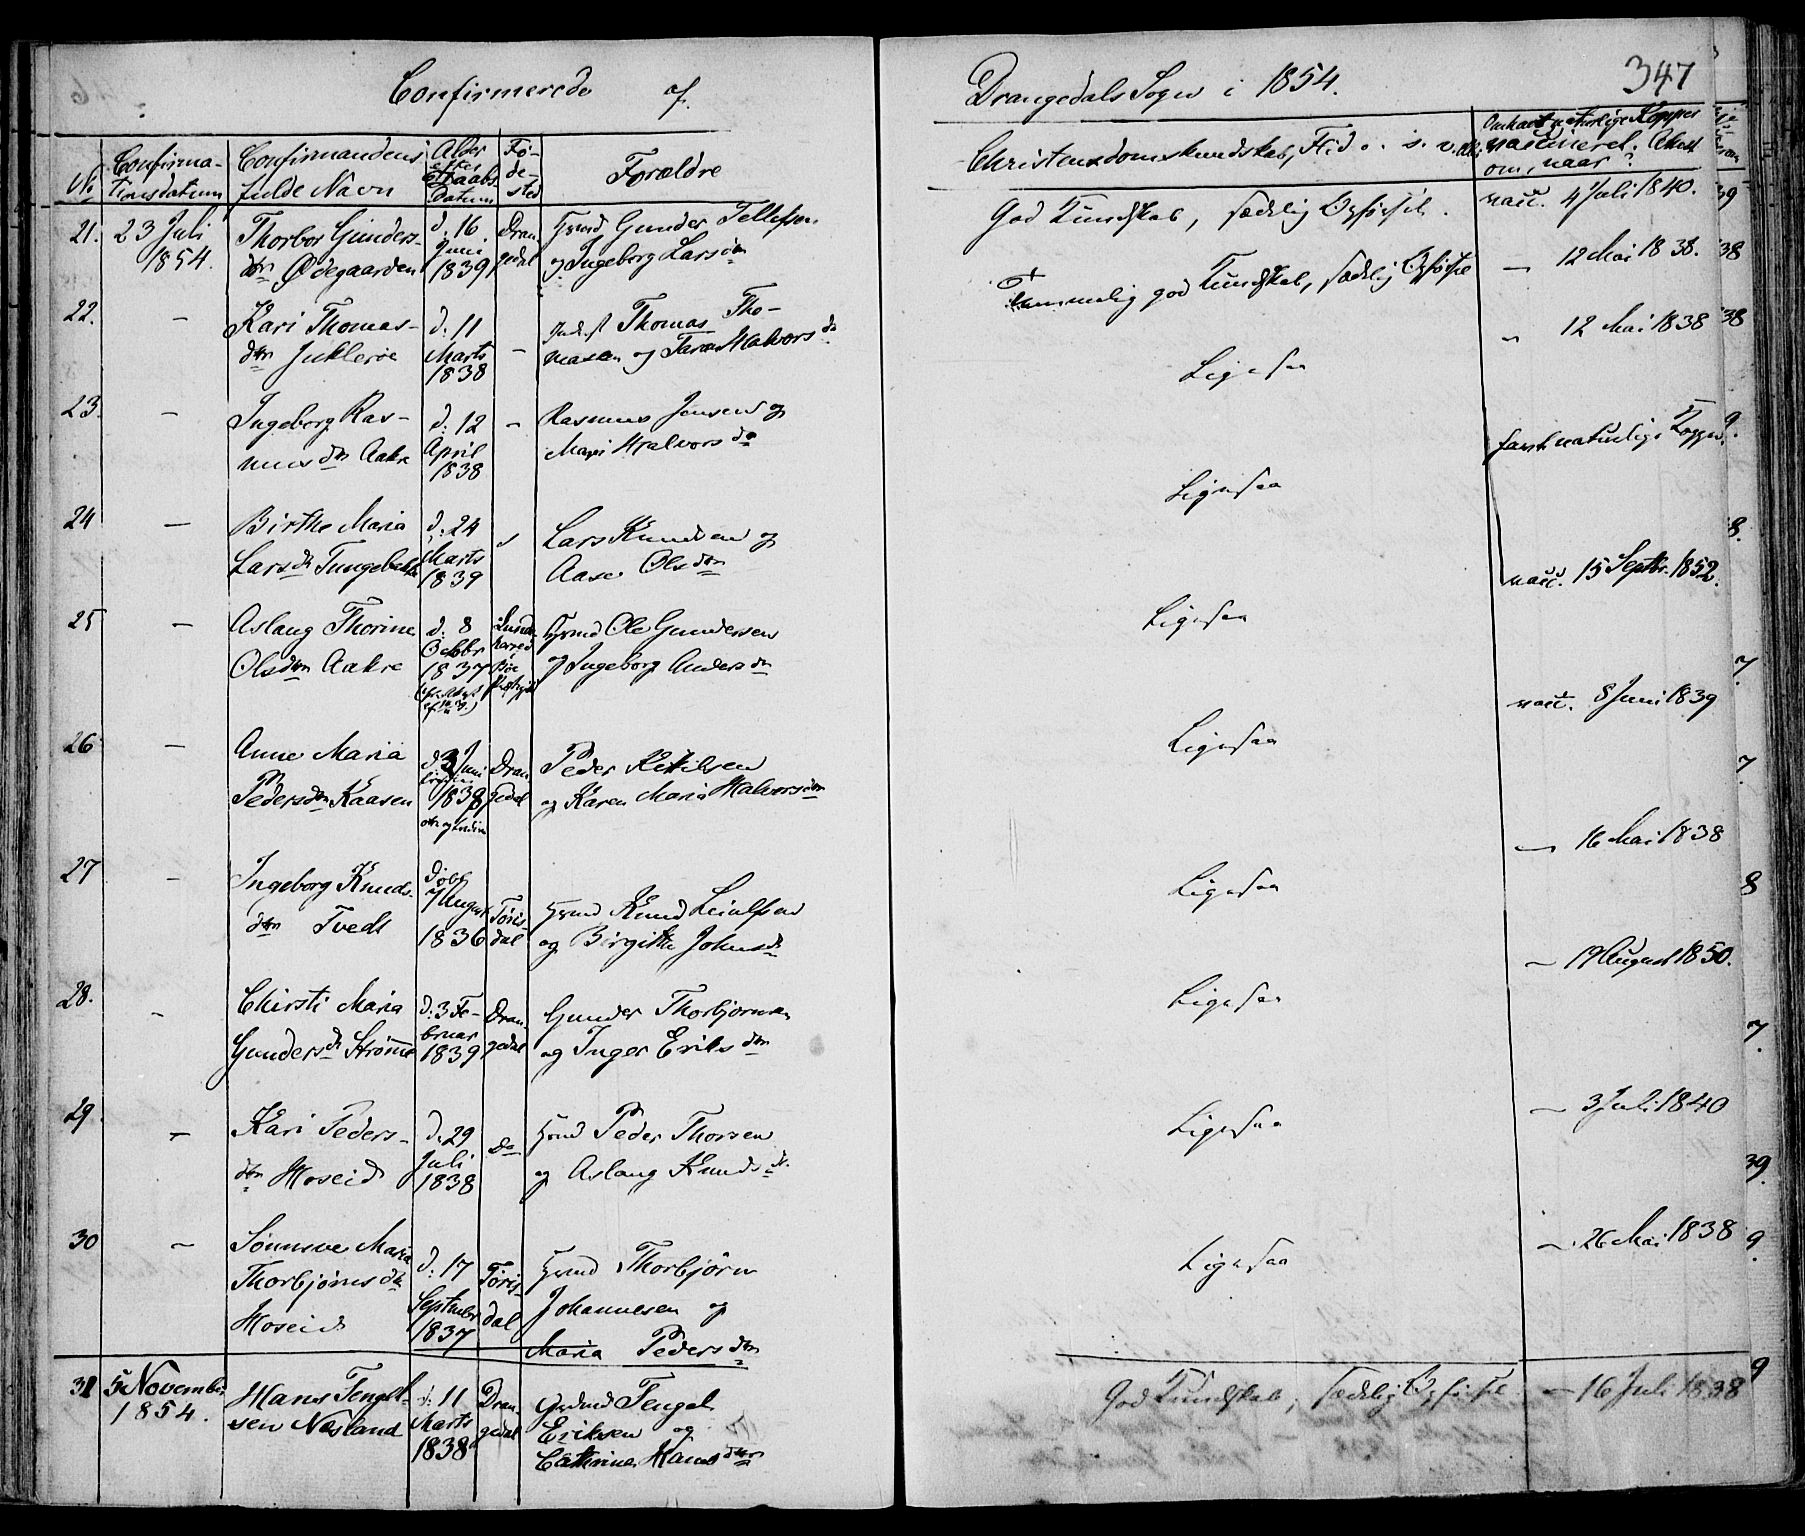 Confirmerede af Drangedals Sogn i 1854. 347
No Confirmationsdatum Confirmandens fulde Navn Alder efter Daabs Datum Fødested Forældre Christendomskundskab, Flid o. s. v. naturlige Kopper vaccineret. om, naar?
21. 23 Juli 1854. Thorbor Gunders- dtr Ødegaarden d. 16. Juni 1839 Dran- gedal Grmd Gunder Tellefsen og Ingeborg Larsdtr God Kundskab, sædelig Opførsel. vacc. 4 Juli 1840.
22. - Kari Thomas- dtr Juklerøe d. 11 Marts 1838 - Thomas Tho- masen og Taran Halvorsd Temmelig god Kundskab, sædelig Opførsel - 12 Mai 1838.
23. - Ingeborg Ras- musdtr Aakre d: 12 April 1838 - Rasmus Jensen og Mari Halvorsd Ligesaa - 12 Mai 1838
24 - Birthe Maria Larsd d. 24 Marts 1839 Lars Knudsen og Aase Olsdtr Ligesaa havt naturlige Kopper.
25 - Aslaug Thorine Olsdtr Aakre d. 8 Octobr 1837 Grmd Ole Gundersen og Ingeborg Andersdtr Ligesaa vacc. 15 Septbr. 1852.
26 - Anne Maria Pedersdtr Kaasen d. 3 Juni 1838 Dran- gedal Peder Kittilsen og Karen Maria Halvorsdtr Ligesaa vacc. 8 Juni 1839
27 - Ingeborg Knuds- dtr Tvedt døbt 7 August 1836 Tøris- dal Grmd Knud Leiulfsen og Birgitte Johnsd Ligesaa - 16 Mai 1838
28. - Chirsti Maria Gundersd Strømme d: 3 Fe- bruar 1839 Dran- gedal Gunder Thorbjørnsen og Inger Eriksdtr Ligesaa - 19 August 1850.
29. - Kari Peders- dtr Hoseid d. 29 Juli 1838 do Grmd Peder Thorsen og Aslaug Knudsd. Ligesaa - 3 Juli 1840
30 - Sønneve Maria Thorbjørnsdtr Hoseid d: 17 September 1837 Tøris- dal Grmd Thorbjørn Johannesen og Maria Pedersdtr Ligesaa - 26 Mai 1838
31 5 November 1854. Hans Tengel- sen Næsland d. 11 Marts 1838 Dran- gedal Grdmd Tengel Eriksen og Cathrine Hansdtr God Kundskab, sædelig Opførsel - 16 Juli 1838